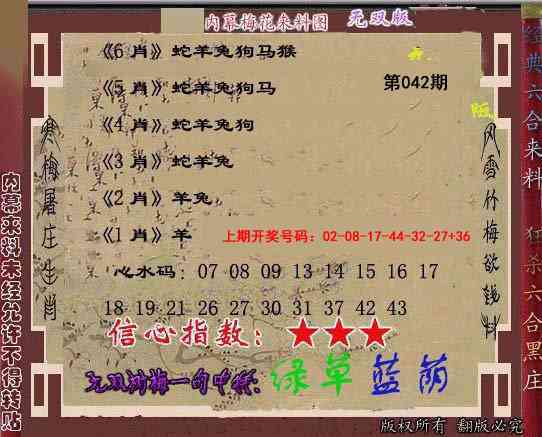 内幕梅花来料图 无双版
《6 肖》蛇羊兔狗马猴
《5 肖》蛇羊兔狗马
第042期
《4 肖》蛇羊兔狗
《3 肖》蛇羊兔
《2 肖》羊兔
《1 肖》羊
上期开奖号码：02-08-17-44-32-27+36
心水码： 07 08 09 13 14 15 16 17
18 19 21 26 27 30 31 37 42 43
信心指数：★★★
无双鸿梅一句中特: 绿草蓝荫
寒梅屠庄生肖
风雪竹梅欲钱料
内幕来料未经允许不得转贴
经典六合来料 狂杀六合黑庄
版权所有 翻版必究